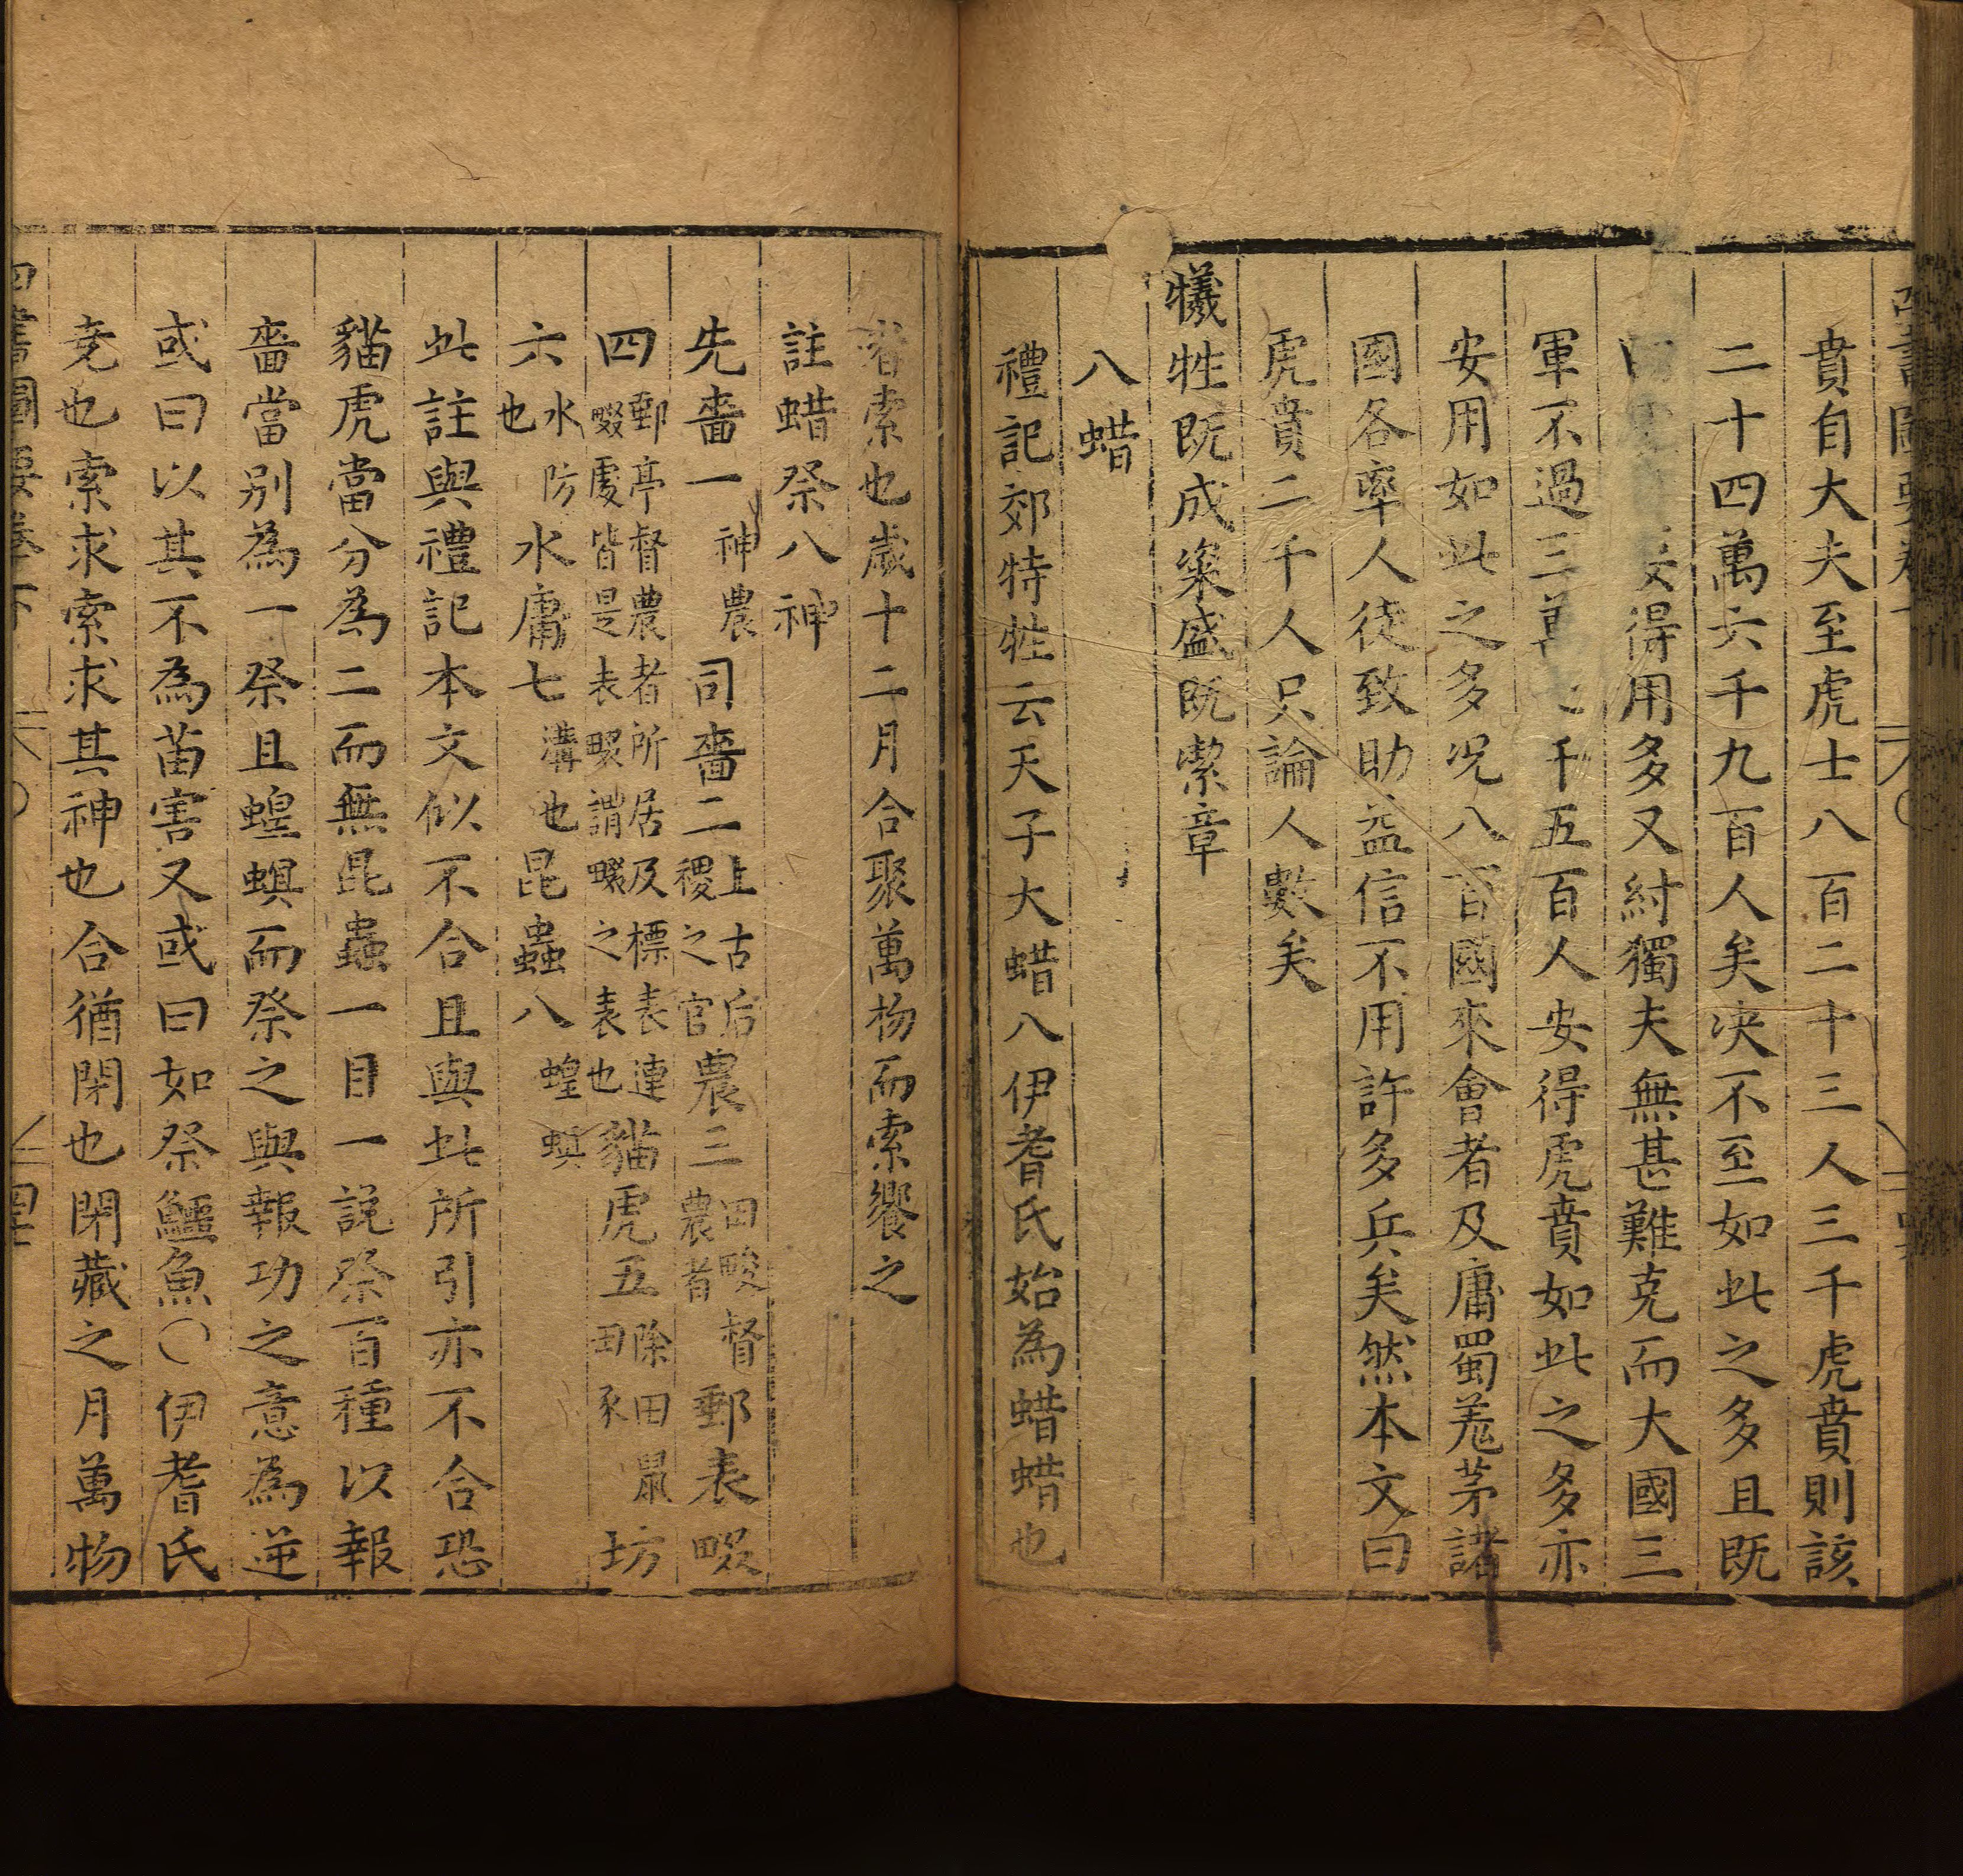 賁自大夫至虎士八百二十三人三千虎賁則該
二十四萬六千九百人矣决不至如此之多且既
安得用多又紂獨夫無甚難克而大國三
軍不過三萬七千五百人安得虎賁如此之多亦
安用如此之多况八百國來會者及庸蜀羗茅諸
國各率人徒致助益信不用許多兵矣然本文曰
虎賁二千人只論人數矣
犧牲既成粢盛既潔章
八蜡
禮記郊特牲云天子大蜡八伊耆氏始為蜡蜡也
者索也歲十二月合聚萬物而索饗之
註蜡祭八神
先嗇一神農司嗇二上古后稷之官農三田畯督農者郵表畷
四郵亭督農者所居及標表連畷處皆是表畷謂畷之表也貓虎五除田鼠田豕坊
六水防也水庸七溝也昆蟲八蝗螟
此註與禮記本文似不合且與此所引亦不合恐
貓虎當分為二而無昆蟲一目一說祭百種以報
嗇當别為一祭且蝗螟而祭之與報功之意為逆
或曰以其不為苗害又或曰如祭鱷魚○伊耆氏
尭也索求索求其神也合猶閉也閉藏之月萬物
四書圖要卷下